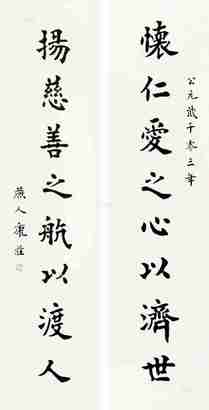 公元貳千零三年
懷仁愛之心以濟世
揚慈善之航以渡人
燕人康莊